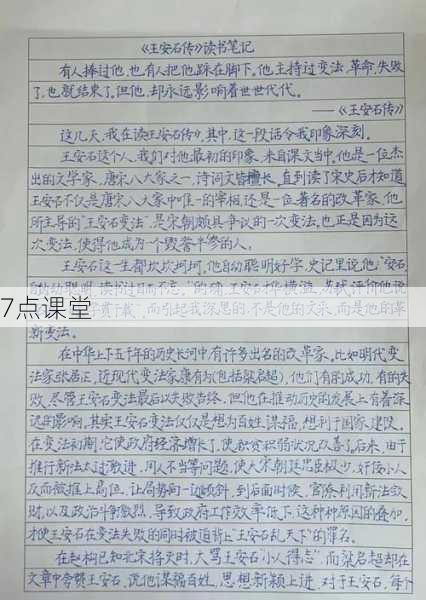 《王安石传》读书笔记
有人捧过他,也有人把他踩在脚下。他主持过变法、革命,失败
了,也就结束了,但他,却永远影响着世世代代。
——《王安石传》
这几天,我在读《王安石传》,其中,这一段话令我印象深刻。
王安石这个人,我们对他最初的印象,来自课文当中。他是一位杰
出的文学家,唐宋八大家之一,诗词文皆擅长。直到读了宋史后才知道
王安石不仅是唐宋八大家中唯一的宰相,还是一位著名的改革家,他
所主导的"王安石变法"是宋朝颇具争议的一次变法,也正是因为这
次变法,使得他成为个毁誉半参的人。
王安石这一生都坎坎坷坷,他自幼聪明好学,史记里说他"安石
自幼聪明,读书过目不忘。"的确,王安石才华横溢,苏轼评价他说
7点课堂
而引起我深思的,不是他的文采,而是他的革
新变法。
在中华上下五千年的历史长河中有许多出名的改革家,比如明代变
法家张居正,近现代变法家康有为(包括梁启超),他们有的成功,有的失
败,尽管王安石变法最后以失败告终,但他在推动历史的发展上有着深
远的影响,其实王安石变法仅仅是想为百姓谋福,想利于国家建设。
在变法初期,它使政府经济增长了,使积贫积弱状况改善了,后来,由于
推行新法太过激进,用人不当等问题,使大宋朝廷忠臣极少,奸佞小人
反而被推上高位,让局势向一边倾斜,到后面时候,官僚利用新法敛
财,以及政治斗争激烈,导致政府工作效率低下,这种种原因的叠加,
才使王安石在变法失败的同时被迫背上"王安石乱天下"的罪名。
在赵构已知北宋将灭时,大骂王安石"小人得志",而梁启超却在
文章中夸赞王安石,说他谋福百姓,思想新颖上进,对于王安石,每个